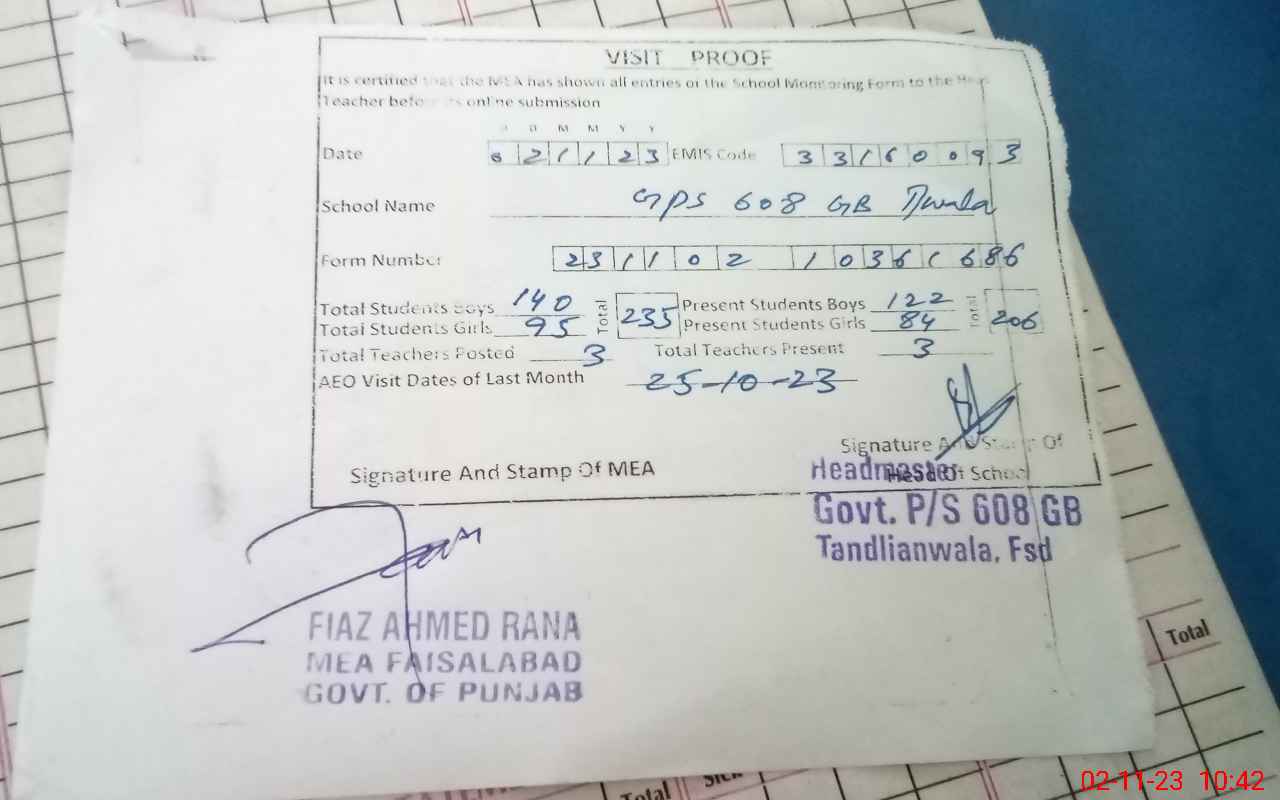 VISIT PROOF
It is certified that the MEA has shown all entries of the School Monitoring Form to the Head
Teacher before its online submission
D D M M Y Y
Date 0 2 1 1 2 3 EMIS Code 3 3 1 6 0 0 9 3
School Name GPS 608 GB
Form Number 2 3 1 1 0 2 1 0 3 6 1 6 8 6
Total Students Boys 140 Total 235 Present Students Boys 122 Total 206
Total Students Girls 95 Present Students Girls 84
Total Teachers Posted 3 Total Teachers Present 3
AEO Visit Dates of Last Month 25-10-23
Signature And Stamp Of
Signature And Stamp Of MEA Head Of School
Headmaster
Govt. P/S 608 GB
Tandlianwala, Fsd
FIAZ AHMED RANA
MEA FAISALABAD
GOVT. OF PUNJAB
Total
Total
02-11-23 10:42